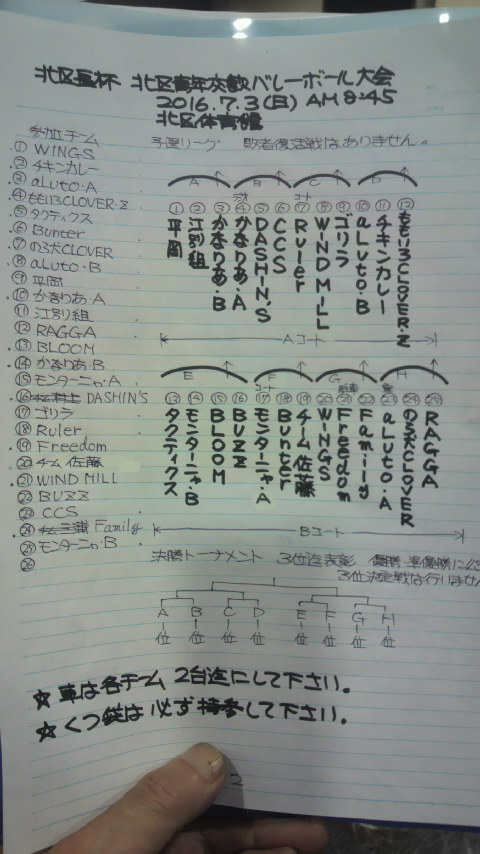 北区長杯 北区青年交歓バレーボール大会
2016.7.3(日) AM 8:45
北区体育館
参加チーム
予選リーグ 敗者復活戦はありません。
① WINGS
② チキンカレー
③ aLuto・A
④ ももいろCLOVER・Z
⑤ タクティクス
⑥ Bunter
⑦ のろ犬CLOVER
⑧ aLuto・B
⑨ 平岡
⑩ かなりあ・A
⑪ 江別組
⑫ RAGGA
⑬ BLOOM
⑭ かなりあ・B
⑮ モンターニャ・A
⑯ DASHIN'S
⑰ ゴリラ
⑱ Ruler
⑲ Freedom
⑳ チーム 佐藤
㉑ WIND MILL
㉒ BUZZ
㉓ CCS
㉔ Family
㉕ モンターニャ・B
㉖
A B C D
① 平岡
② 江別組
③ かなりあ・B
④ かなりあ・A
⑤ DASHIN'S
⑥ CCS
⑦ Ruler
⑧ WIND MILL
⑨ ゴリラ
⑩ aLuto・B
⑪ チキンカレー
⑫ ももいろCLOVER・Z
Aコート
E F G H
⑬ タクティクス
⑭ モンターニャ・B
⑮ BLOOM
⑯ BUZZ
⑰ モンターニャ・A
⑱ Bunter
⑲ チーム佐藤
⑳ WINGS
㉑ Freedom
㉒ Family
㉓ aLuto・A
㉔ のろ犬CLOVER
㉕ RAGGA
Bコート
決勝トーナメント 3位迄表彰 優勝・準優勝に
3位決定戦は行りません
A B C D E F G H
位 位 位 位 位 位 位 位
☆ 車は各チーム 2台迄にして下さい。
☆ くつ袋は必ず持参して下さい。
2